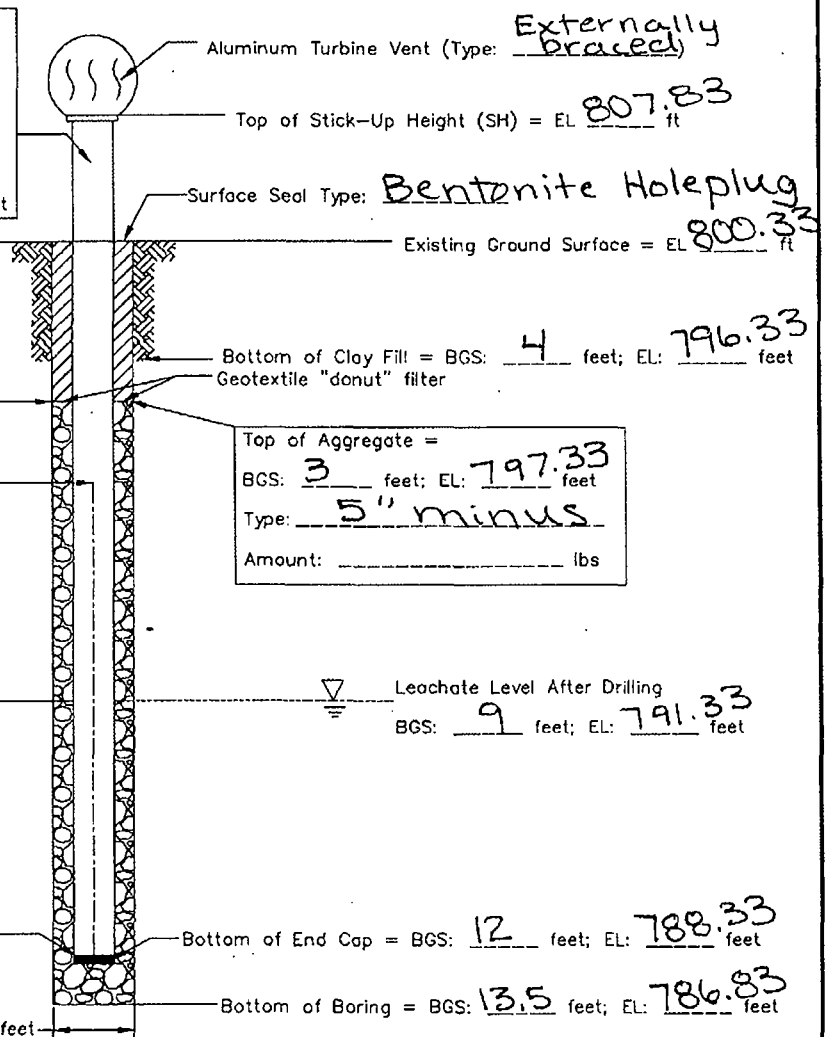 Aluminum Turbine Vent (Type: Externally braced)
Top of Stick-Up Height (SH) = EL 807.83 ft
t
Surface Seal Type: Bentonite Holeplug
Existing Ground Surface = EL 800.33 ft
Bottom of Clay Fill = BGS: 4 feet; EL: 796.33 feet
Geotextile "donut" filter
Top of Aggregate =
BGS: 3 feet; EL: 797.33 feet
Type: 5" minus
Amount: ______ lbs
Leachate Level After Drilling
BGS: 9 feet; EL: 791.33 feet
Bottom of End Cap = BGS: 12 feet; EL: 788.33 feet
Bottom of Boring = BGS: 13.5 feet; EL: 786.83 feet
feet